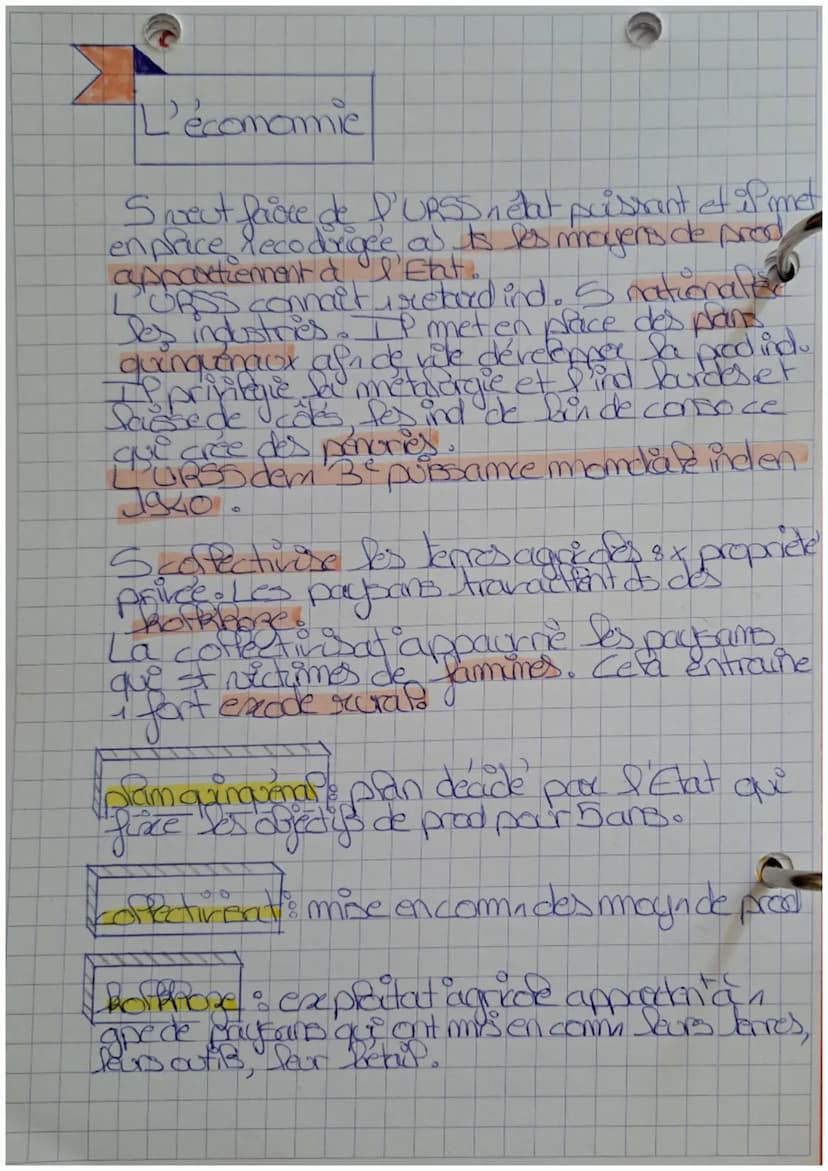 L'économie
S veut faire de l'URSS n état puissant et il met
en place l'eco dirigée où ts les moyens de prod
appartiennent à l'Etat.
L'URSS connaît 1 retard ind. S nationalise
les industries. Il met en place des plans
quinquénaux afn de vite développer la prod ind.
Il privilégie la métalurgie et l'ind lourdes et
laisse de côtés, les ind de bien de conso ce
qui crée des pénuries.
L'URSS dem 3e puissance mondiale ind en
1940.
S collectivise les terres agricoles &x propriété
privée. Les paysans travaillent ds des
kolkhoze.
La collectivisat° appauvrie les paysans
qui st victimes de famines. Cela entraîne
1 fort exode rural
plan quinquénal : plan décidé par l'Etat qui
fixe les objectifs de prod pour 5 ans.
collectivisat° : mise en comn des moyn de prod
kolkhoze : exploitat° agricole appartnt à n
gpe de paysans qui ont mis en comn leurs terres,
leurs outils, leur bétail.